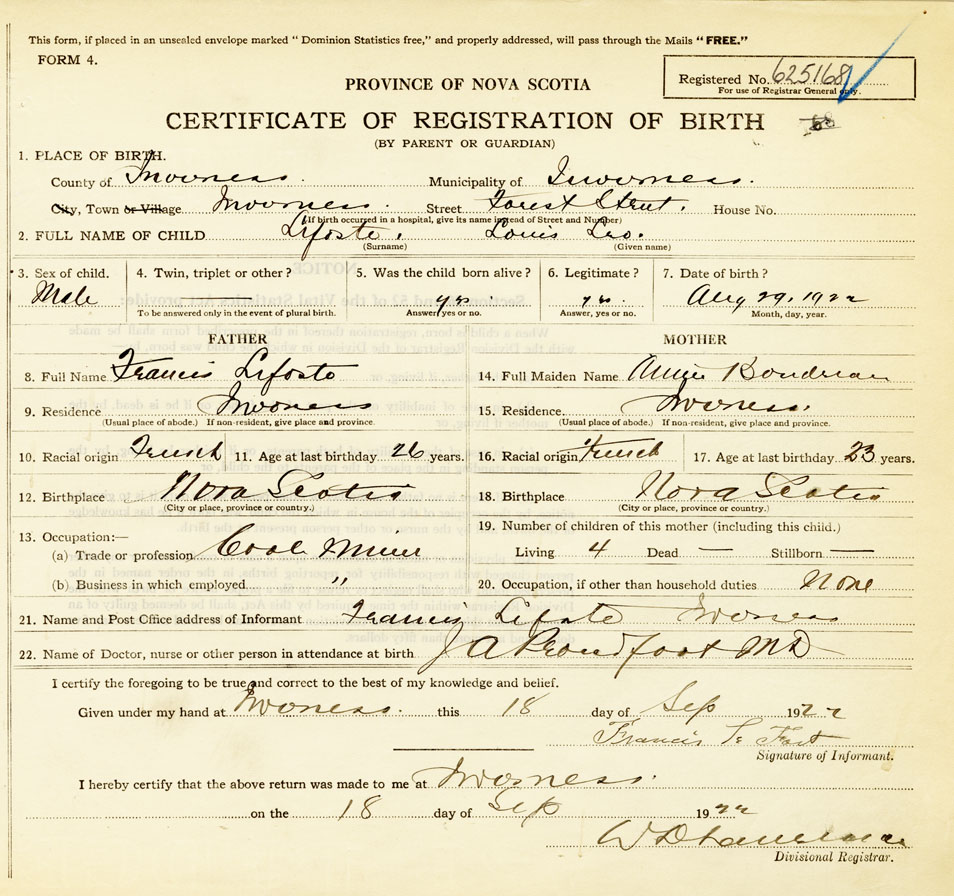 This form, if placed in an unsealed envelope marked "Dominion Statistics free," and properly addressed, will pass through the Mails "FREE."
FORM 4.
Registered No. 625168
For use of Registrar General only.
PROVINCE OF NOVA SCOTIA
CERTIFICATE OF REGISTRATION OF BIRTH
(BY PARENT OR GUARDIAN)
1. PLACE OF BIRTH.
County of Inverness. Municipality of Inverness.
City, Town or Village Inverness. Street Forest Street. House No.
(If birth occurred in a hospital, give its name instead of Street and Number)
2. FULL NAME OF CHILD Leforte. Louis Leo.
(Surname) (Given name)
3. Sex of child. 4. Twin, triplet or other? 5. Was the child born alive? 6. Legitimate? 7. Date of birth?
Male yes yes. Aug 29, 1922
To be answered only in the event of plural birth. Answer, yes or no. Answer, yes or no. Month, day, year.
FATHER MOTHER
8. Full Name Francis Leforte 14. Full Maiden Name Annie Boudreau
9. Residence Inverness 15. Residence. Inverness.
(Usual place of abode.) If non-resident, give place and province. (Usual place of abode.) If non-resident, give place and province.
10. Racial origin French 11. Age at last birthday 26 years. 16. Racial origin French 17. Age at last birthday 23 years.
12. Birthplace Nova Scotia 18. Birthplace Nova Scotia
(City or place, province or country.) (City or place, province or country.)
13. Occupation:— 19. Number of children of this mother (including this child.)
(a) Trade or profession Coal Miner Living 4 Dead — Stillborn —
(b) Business in which employed " 20. Occupation, if other than household duties None
21. Name and Post Office address of Informant Francis Leforte Inverness
22. Name of Doctor, nurse or other person in attendance at birth J A Proudfoot MD
I certify the foregoing to be true and correct to the best of my knowledge and belief.
Given under my hand at Inverness. this 18 day of Sep 1922
Francis Le Fort
Signature of Informant.
I hereby certify that the above return was made to me at Inverness.
on the 18 day of Sep 1922
W D
Divisional Registrar.